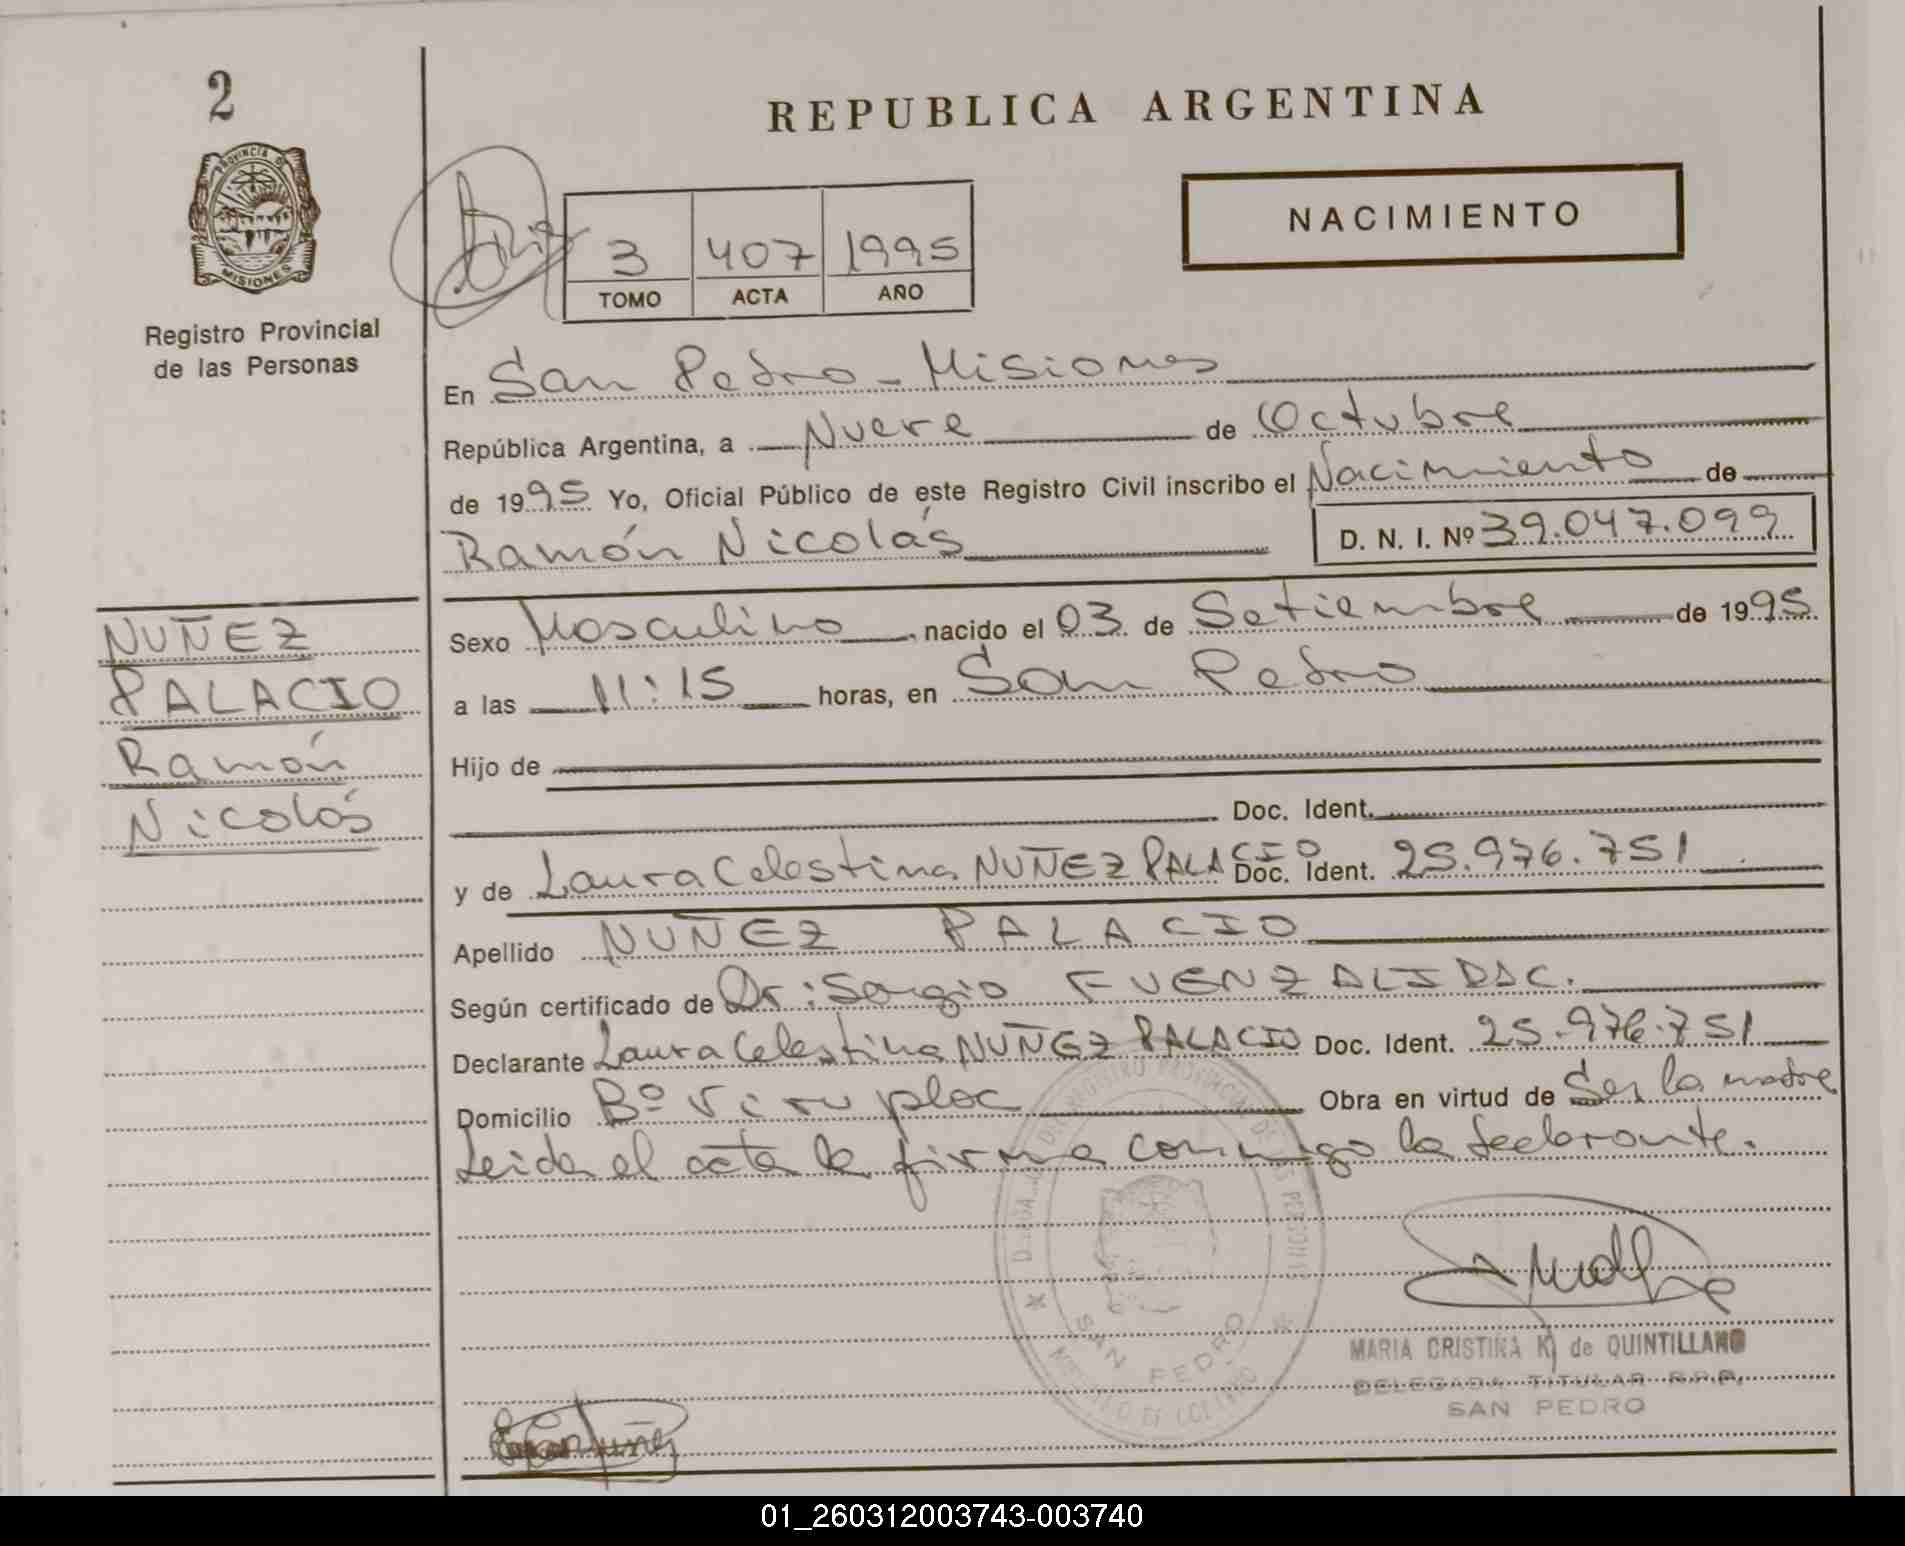 2
REPUBLICA ARGENTINA
PROVINCIA D
MISIONES
Registro Provincial
de las Personas
3 407 1995
TOMO ACTA AÑO
NACIMIENTO
En San Pedro - Misiones
República Argentina, a Nueve de Octubre
de 1995 Yo, Oficial Público de este Registro Civil inscribo el Nacimiento de
Ramón Nicolás D. N. I. Nº 39.047.099
NUÑEZ
PALACIO
Ramón
Nicolás
Sexo Masculino, nacido el 03 de Setiembre de 1995
a las 11:15 horas, en San Pedro
Hijo de
Doc. Ident.
y de Laura Celestina NUÑEZ PALACIO Doc. Ident. 25.976.751
Apellido NUÑEZ PALACIO
Según certificado de Dr: Sergio FUENZALIDA C.
Declarante Laura Celestina NUÑEZ PALACIO Doc. Ident. 25.976.751
Domicilio Bº Obra en virtud de Ser la madre
Leida el acta la firma conmigo la declarante.
SAN PEDRO
MARIA CRISTINA K de QUINTILLANO
DELEGADA TITULAR R.P.P.
SAN PEDRO
01_260312003743-003740